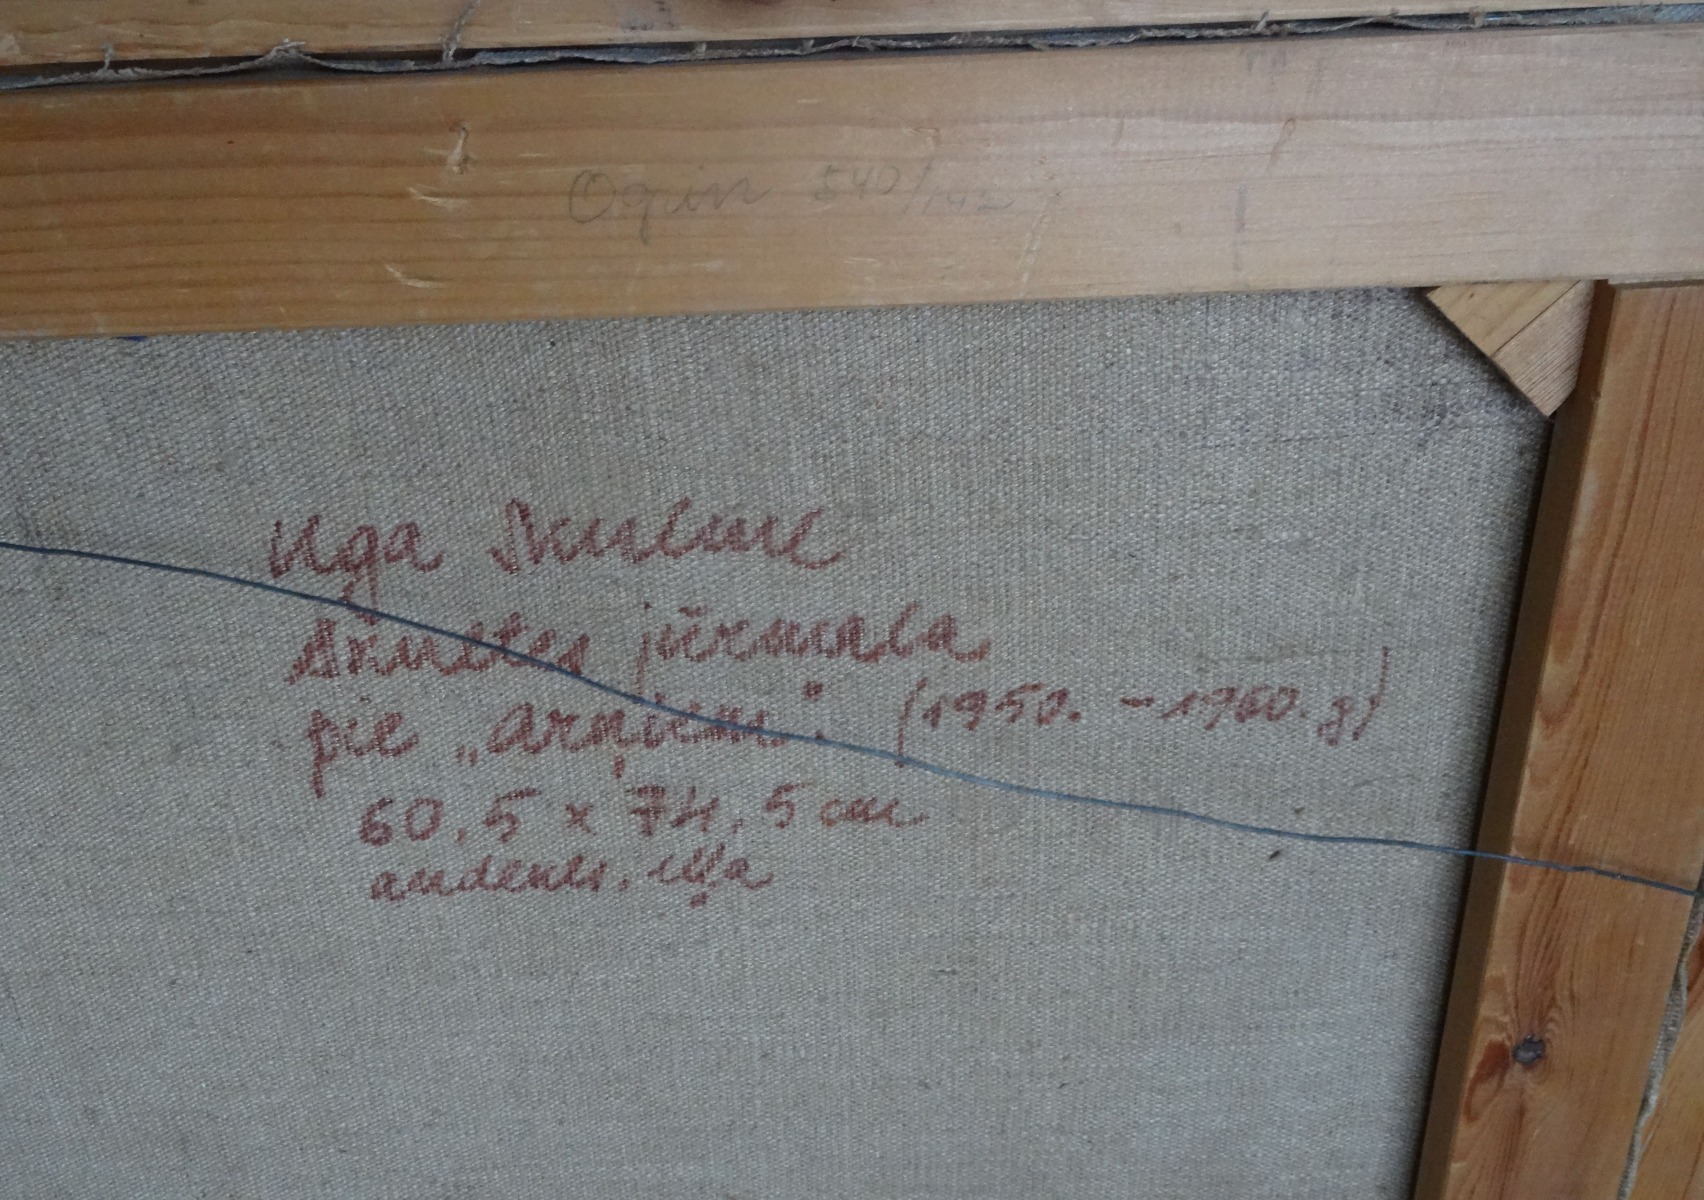 Ogün 540/142
Uga Skulme
Skultes jūrmala
pie „arņiem". (1950. - 1960. g)
60,5 x 74,5 cm
audekls, eļļa